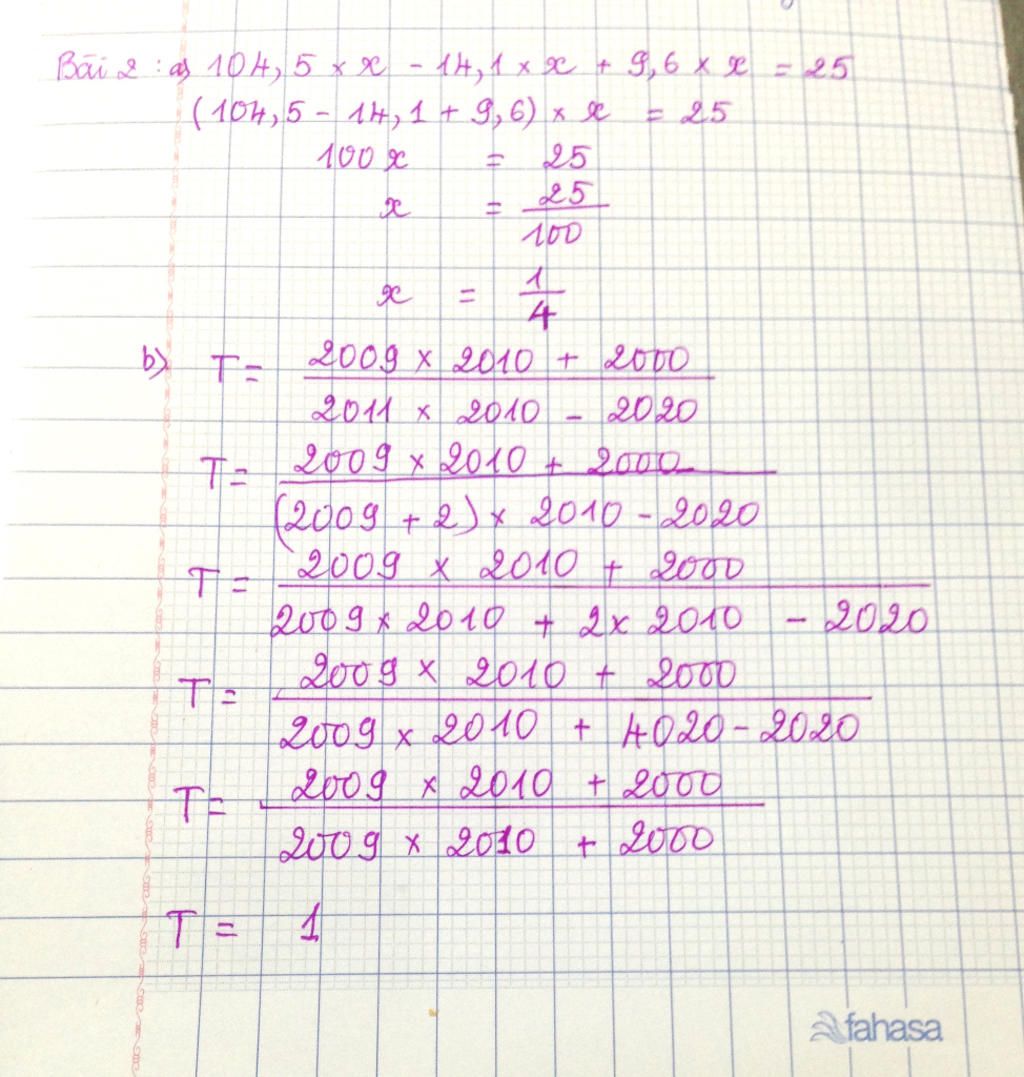 Bài 2 : a) 104,5 × x - 14,1 × x + 9,6 × x = 25
(104,5 - 14,1 + 9,6) × x = 25
100 x = 25
x = 25
100
x = 1
4
b) T = 2009 × 2010 + 2000
2011 × 2010 - 2020
T = 2009 × 2010 + 2000
(2009 + 2) × 2010 - 2020
T = 2009 × 2010 + 2000
2009 × 2010 + 2 × 2010 - 2020
T = 2009 × 2010 + 2000
2009 × 2010 + 4020 - 2020
T = 2009 × 2010 + 2000
2009 × 2010 + 2000
T = 1
fahasa